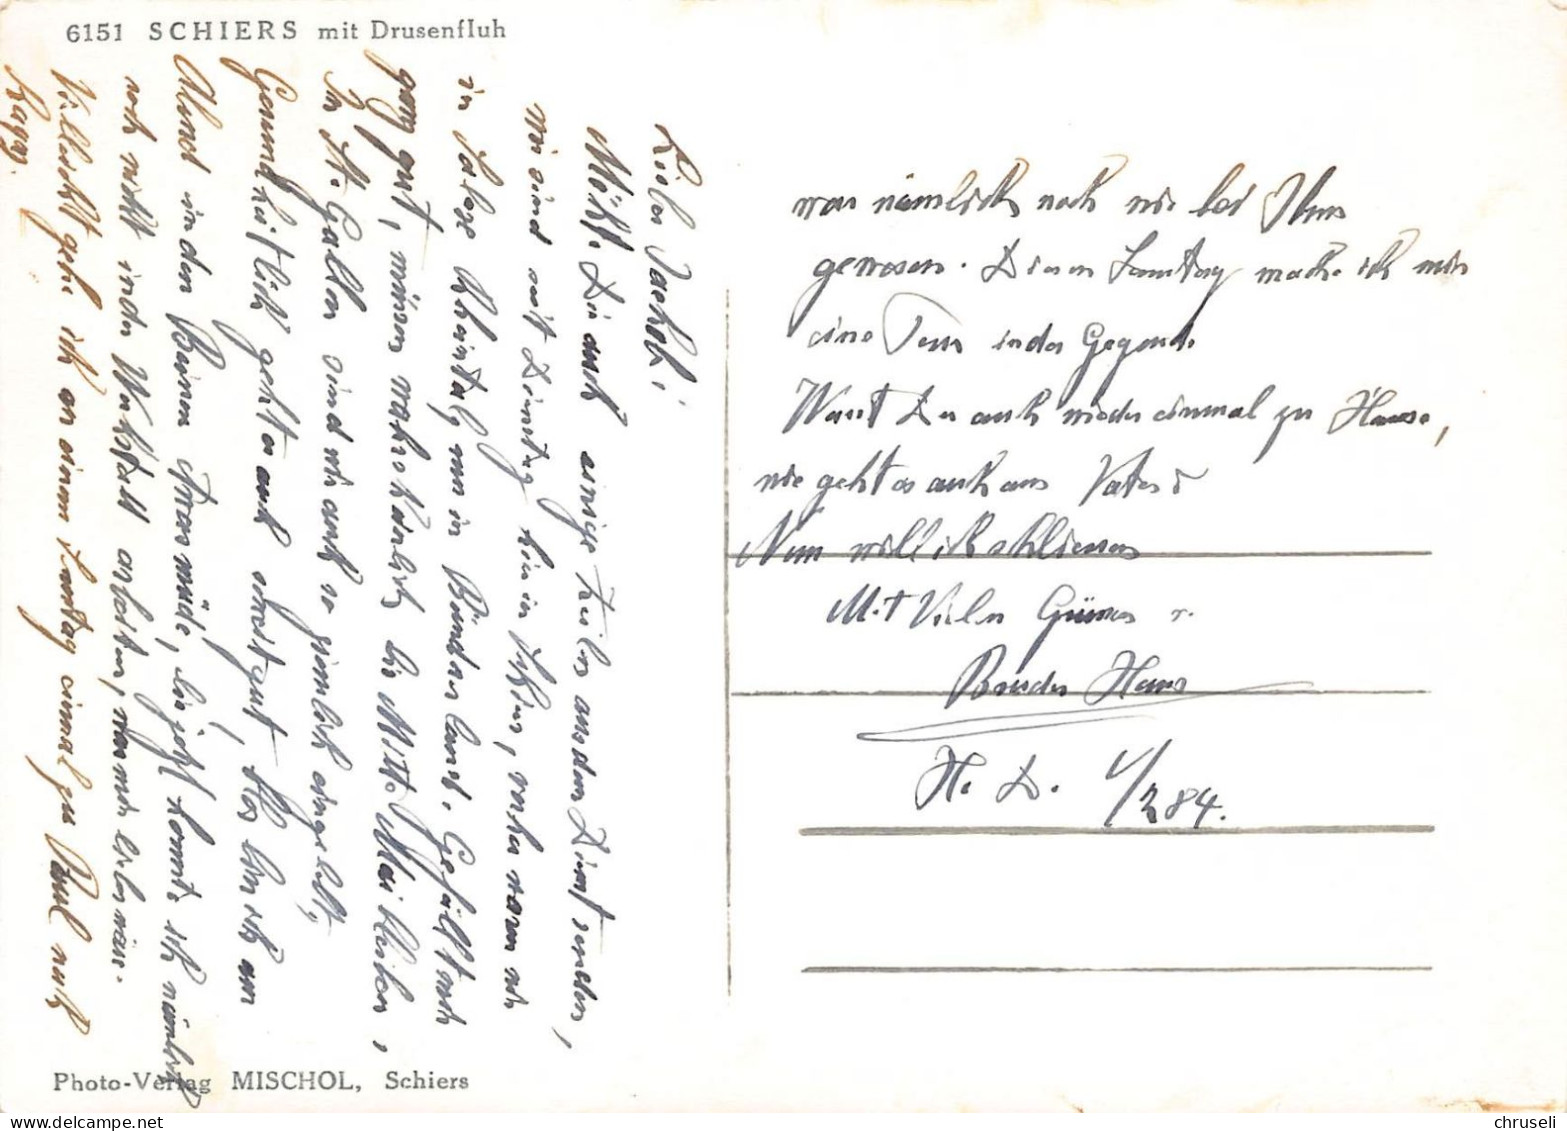 6151 SCHIERS mit Drusenfluh
Lieber Jackob!
Möchte Dir auch einige Zeilen aus dem Dienst senden,
wir sind seit Dienstag hier in Schiers, vorher waren wir
in Salez Rheintal, nun in Bündner Land. Gefällt mir
ganz gut, müssen wahrscheinlich bis Mitte Mai bleiben,
In St. Gallen sind wir auch so ziemlich eingeteilt,
Gesundheitlich geht es auch soweit gut, bin ich am
Abend in den Beinen müde, bis jetzt konnte ich nämlich
noch nicht in der Werkstatt arbeiten, was mir lieber wäre.
Villeicht gehe ich an einem Samstag einmal zu Paul nach
Ragaz.
war nämlich noch nie bei Ihm
gewesen. Diesen Samstag mache ich mir
eine Tour in der Gegend.
Warst Du auch wieder einmal zu Hause,
wie geht es auch am Vater?
Nun will ich schliessen
Mit Vielen Grüssen
Bruder Hans
H. D. 284.
Photo-Verlag MISCHOL, Schiers
chruseli